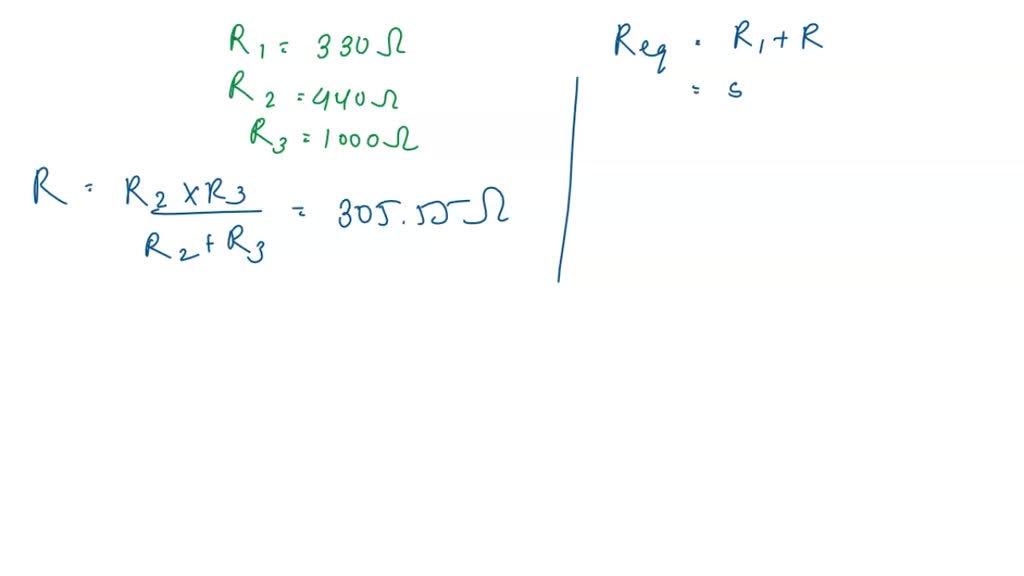 R1 = 330Ω
R2 = 440Ω
R3 = 1000Ω
R = R2 × R3 / R2 + R3 = 305.55Ω
Req = R1 + R
= 5